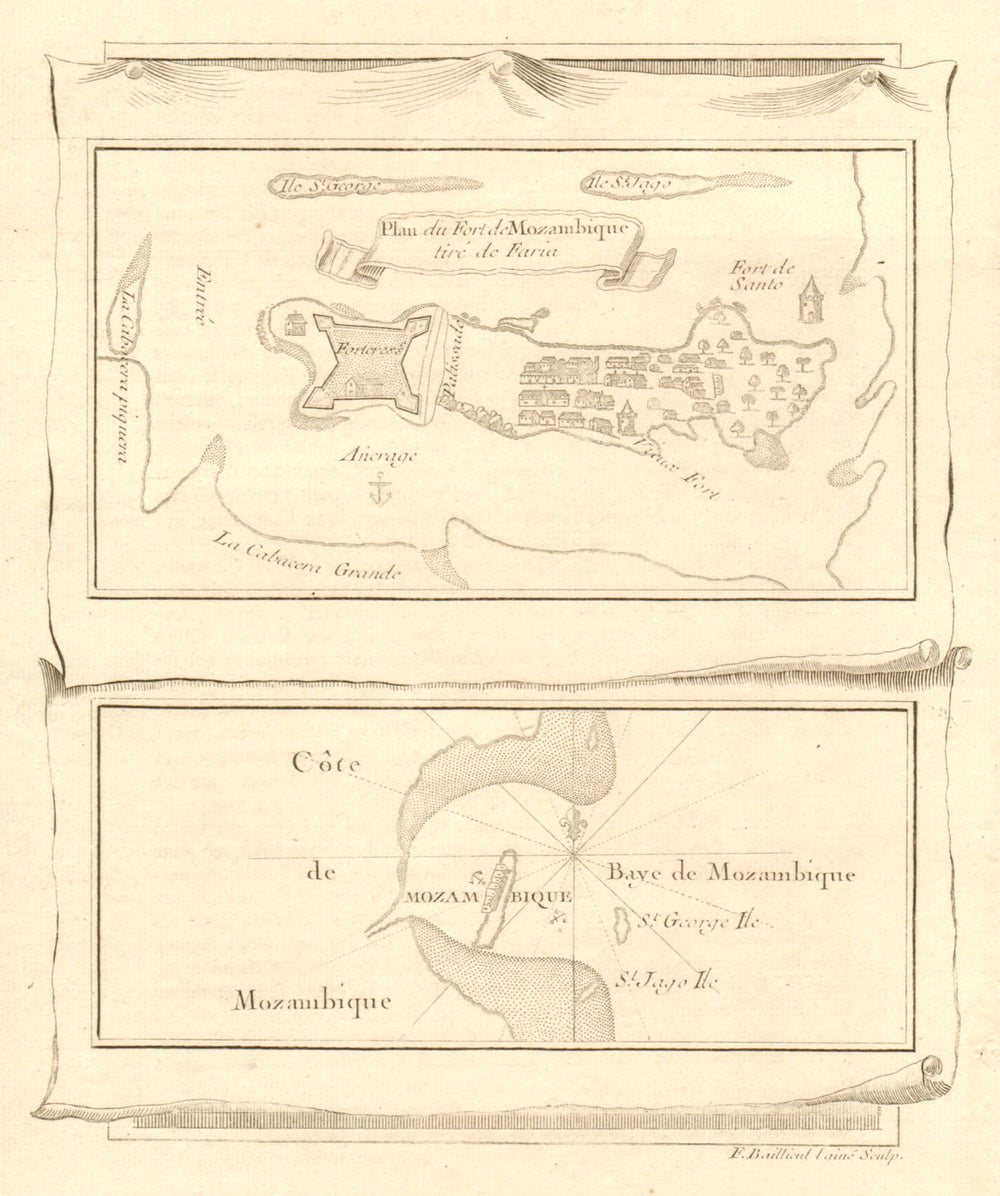 Ile S.t George
Ile S.t Jago
Plan du Fort de Mozambique
tiré de Faria
Fort de
Santo
Entrée
La Cabacera piquera
Forteresse
Palissade
Ancrage
Vieux Fort
La Cabacera Grande
Côte
de
Mozambique
MOZAMBIQUE
Baye de Mozambique
S.t George Ile
S.t Jago Ile
F. Baillieul l'ainé Sculp.